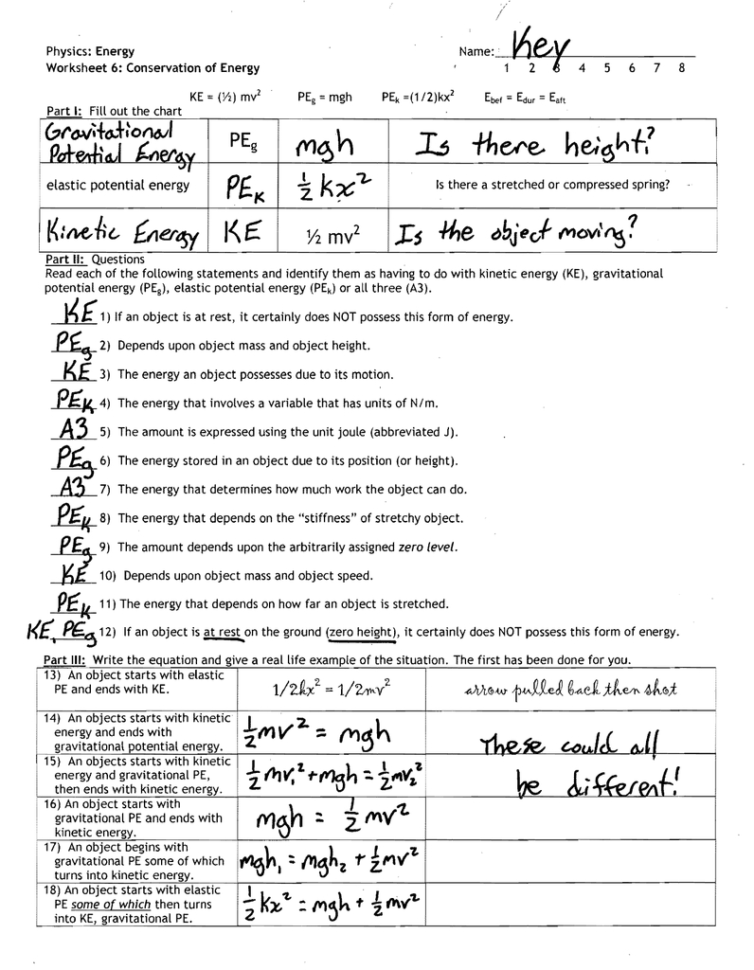 Physics: Energy
Name: Key
Worksheet 6: Conservation of Energy
1 2 3 4 5 6 7 8
KE = (½) mv² PEg = mgh PEk =(1/2)kx² Ebef = Edur = Eaft
Part I: Fill out the chart
Gravitational
Potential Energy PEg mgh Is there height?
elastic potential energy PEK ½ kx² Is there a stretched or compressed spring?
Kinetic Energy KE ½ mv² Is the object moving?
Part II: Questions
Read each of the following statements and identify them as having to do with kinetic energy (KE), gravitational
potential energy (PEg), elastic potential energy (PEk) or all three (A3).
KE 1) If an object is at rest, it certainly does NOT possess this form of energy.
PEg 2) Depends upon object mass and object height.
KE 3) The energy an object possesses due to its motion.
PEK 4) The energy that involves a variable that has units of N/m.
A3 5) The amount is expressed using the unit joule (abbreviated J).
PEg 6) The energy stored in an object due to its position (or height).
A3 7) The energy that determines how much work the object can do.
PEK 8) The energy that depends on the "stiffness" of stretchy object.
PEg 9) The amount depends upon the arbitrarily assigned zero level.
KE 10) Depends upon object mass and object speed.
PEK 11) The energy that depends on how far an object is stretched.
KE, PEg 12) If an object is at rest on the ground (zero height), it certainly does NOT possess this form of energy.
Part III: Write the equation and give a real life example of the situation. The first has been done for you.
13) An object starts with elastic
PE and ends with KE.
1/2kx² = 1/2mv²
arrow pulled back then shot
14) An objects starts with kinetic
energy and ends with
gravitational potential energy.
½mv² = mgh
These could all
15) An objects starts with kinetic
energy and gravitational PE,
then ends with kinetic energy.
½mv₁² + mgh = ½mv₂²
be different!
16) An object starts with
gravitational PE and ends with
kinetic energy.
mgh = ½mv²
17) An object begins with
gravitational PE some of which
turns into kinetic energy.
mgh₁ = mgh₂ + ½mv²
18) An object starts with elastic
PE some of which then turns
into KE, gravitational PE.
½kx² = mgh + ½mv²